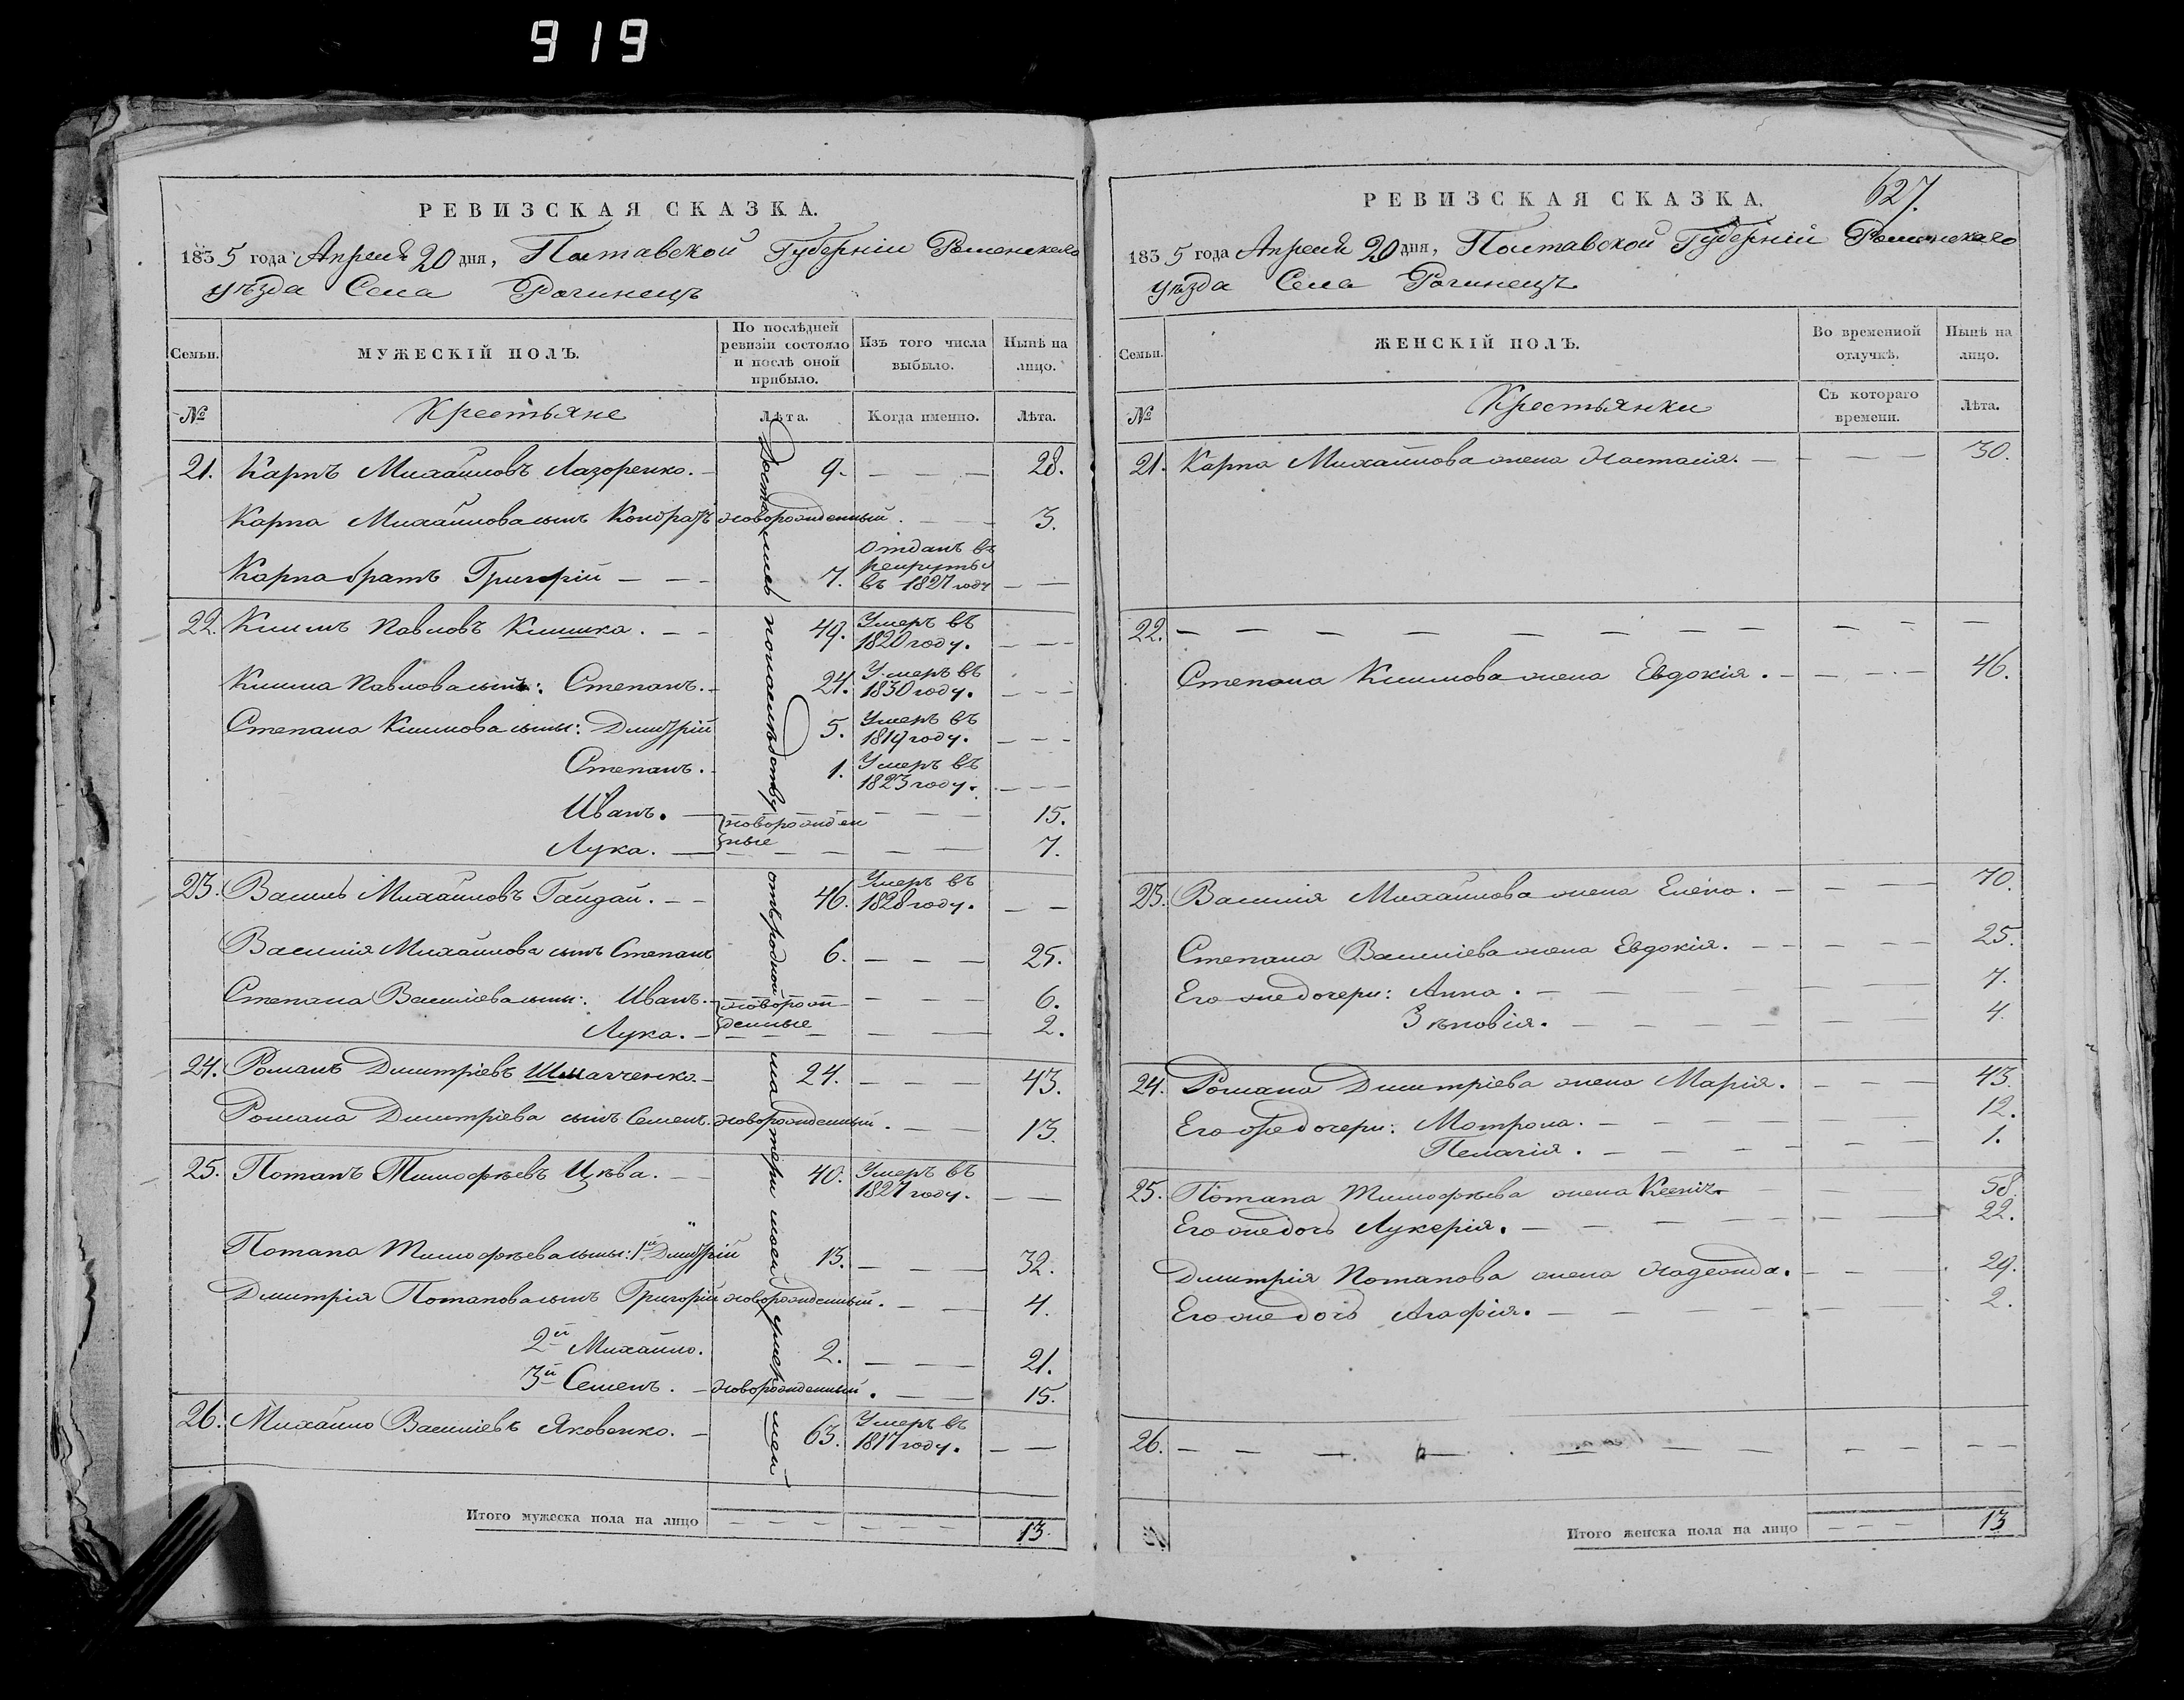 919
РЕВИЗСКАЯ СКАЗКА.
1835 года Апреля 20 дня, Полтавской Губерніи Роменскаго
уѣзда Села Рогинецъ
Семьи.
МУЖЕСКІЙ ПОЛЪ.
По послѣдней ревизіи состояло и послѣ оной прибыло.
Изъ того числа выбыло.
Нынѣ на лицо.
№
Крестьяне
Лѣта.
Когда именно.
Лѣта.
Достались по наслѣдству отъ родной матери моей
21. Карпъ Михайловъ Лазоренко. 9. 28.
Карпа Михайлова сынъ Кондратъ новорожденный. 3.
Карпа братъ Григорій 7. Отданъ въ рекруты въ 1827 году
22. Климъ Павловъ Клишка. 49. Умеръ въ 1820 году.
Клима Павлова сынъ: Степанъ. 24. Умеръ въ 1830 году.
Степана Климова сыны: Дмитрій 5. Умеръ въ 1819 году.
Степанъ. 1. Умеръ въ 1823 году.
Иванъ. новорожден 15.
Лука. ные 7.
23. Василь Михайловъ Гайдай. 46. Умеръ въ 1828 году.
Василія Михайлова сынъ Степанъ 6. 25.
Степана Василіева сыны: Иванъ. новорож 6.
Лука. денные 2.
24. Романъ Дмитріевъ 24. 43.
Романа Дмитріева сынъ Семенъ. новорожденный. 13.
25. Потапъ Тимофѣевъ Цѣва. 40. Умеръ въ 1827 году.
Потапа Тимофѣева сыны: 1й Дмитрій 13. 32.
Дмитрія Потапова сынъ Григорій новорожденный. 4.
2й Михайло. 2. 21.
3й Семенъ. новорожденный. 15.
26. Михайло Василіевъ Яковенко. 63. Умеръ въ 1817 году.
Итого мужеска пола на лицо 13.
627.
РЕВИЗСКАЯ СКАЗКА.
1835 года Апреля 20 дня, Полтавской Губерніи Роменскаго
уѣзда Села Рогинецъ.
Семьи.
ЖЕНСКІЙ ПОЛЪ.
Во временной отлучкѣ.
Нынѣ на лицо.
№
Крестьянки
Съ котораго времени.
Лѣта.
21. Карпа Михайлова жена Настасія. 30.
22.
Степана Климова жена Евдокія. 46.
23. Василія Михайлова жена Елена. 70.
Степана Василіева жена Евдокія. 25.
Его же дочери: Анна. 7.
Зѣновія. 4.
24. Романа Дмитріева жена Марія. 43.
Его же дочери: Мотрона. 12.
Пелагія. 1.
25. Потапа Тимофѣева жена Ксенія. 58.
Его же дочь Лукерія. 22.
Дмитрія Потапова жена Надежда. 29.
Его же дочь Агафія. 2.
26.
Итого женска пола на лицо 13